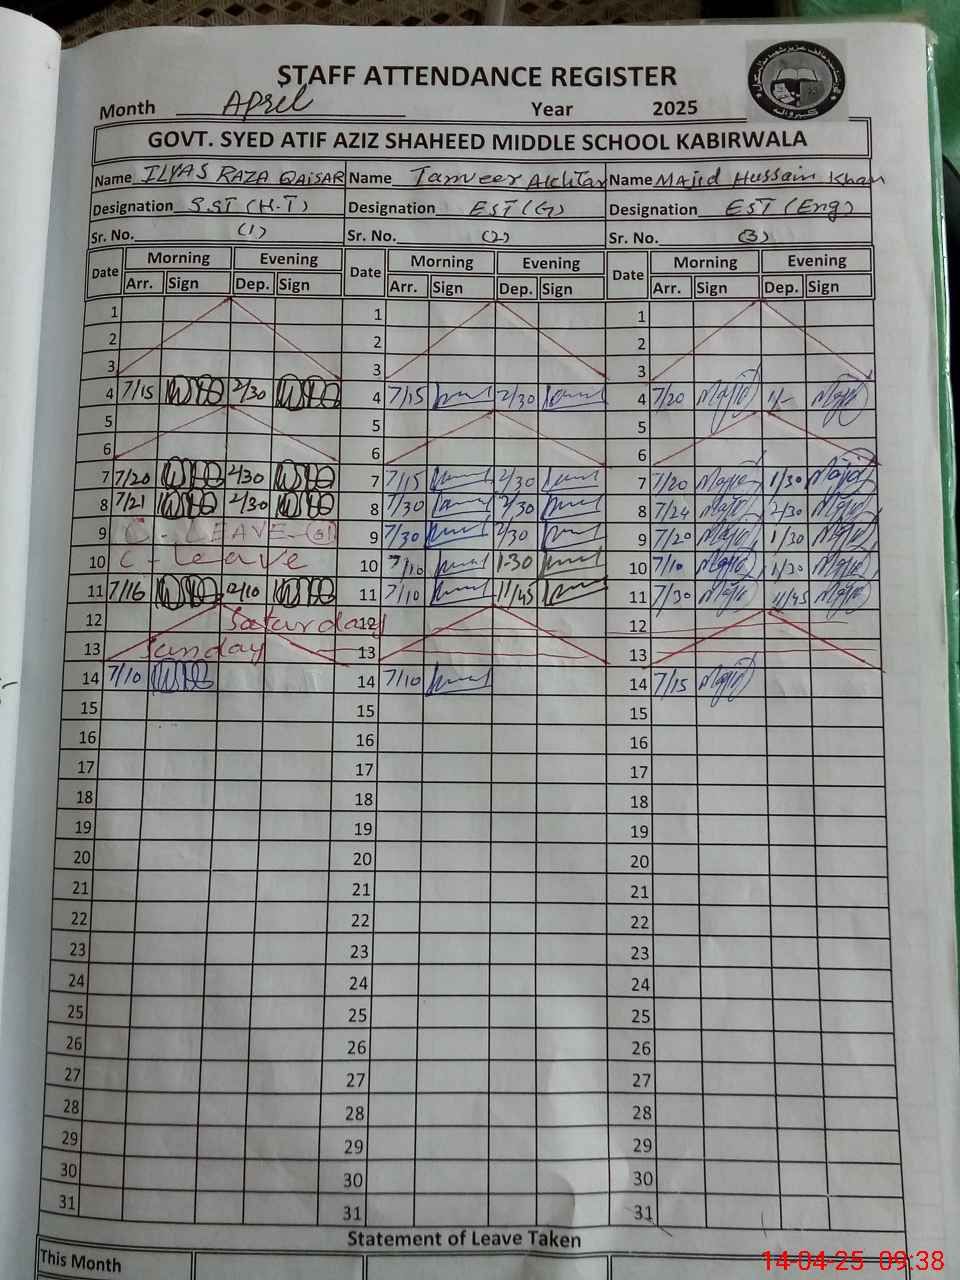 STAFF ATTENDANCE REGISTER
Month April Year 2025
GOVT. SYED ATIF AZIZ SHAHEED MIDDLE SCHOOL KABIRWALA
Name ILYAS RAZA QAISAR Name Tanveer Akhtar Name Majid Hussain Khan
Designation S.ST (H.T) Designation EST (G) Designation EST (Eng)
Sr. No. (1) Sr. No. (2) Sr. No. (3)
Date Morning Evening Date Morning Evening Date Morning Evening
Arr. Sign Dep. Sign Arr. Sign Dep. Sign Arr. Sign Dep. Sign
1 1 1
2 2 2
3 3 3
4 7/15 2/30 4 7/15 2/30 4 7/20 Majid 1/- Majid
5 5 5
6 6 6
7 7/20 2/30 7 7/15 2/30 7 7/20 Majid 1/30 Majid
8 7/21 2/30 8 7/30 2/30 8 7/24 Majid 2/30 Majid
9 C - LEAVE 9 7/30 2/30 9 7/20 Majid 1/30 Majid
10 C - Leave 10 7/10 1-30 10 7/10 Majid 1/30 Majid
11 7/16 2/10 11 7/10 11/45 11 7/30 Majid 11/45 Majid
12 Saturday 12 12
13 Sunday 13 13
14 7/10 14 7/10 14 7/15 Majid
15 15 15
16 16 16
17 17 17
18 18 18
19 19 19
20 20 20
21 21 21
22 22 22
23 23 23
24 24 24
25 25 25
26 26 26
27 27 27
28 28 28
29 29 29
30 30 30
31 31 31
Statement of Leave Taken
This Month
14-04-25 09:38